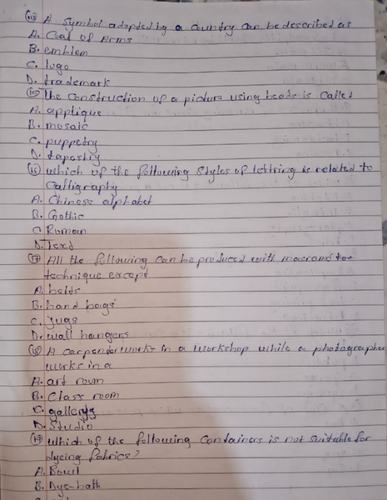 A symbol adopted by a country can be described as
A. Coat of Arms
B. emblem
C. logo
D. trademark
The construction of a picture using beads is called
A. applique
B. mosaic
C. puppetry
D. tapestry
which of the following styles of lettring is related to
Calligraphy
A. Chinese alphabet
B. Gothic
C. Roman
D. Text
All the following can be produced with macramé
technique except
A. belts
B. hand bags
C. Jugs
D. wall hangers
A carpenter works in a workshop while a photographer
works in a
A. art room
B. Class room
C. gallery
D. Studio
which of the following containers is not suitable for
dyeing fabrics?
A. Bowl
B. Dye-bath